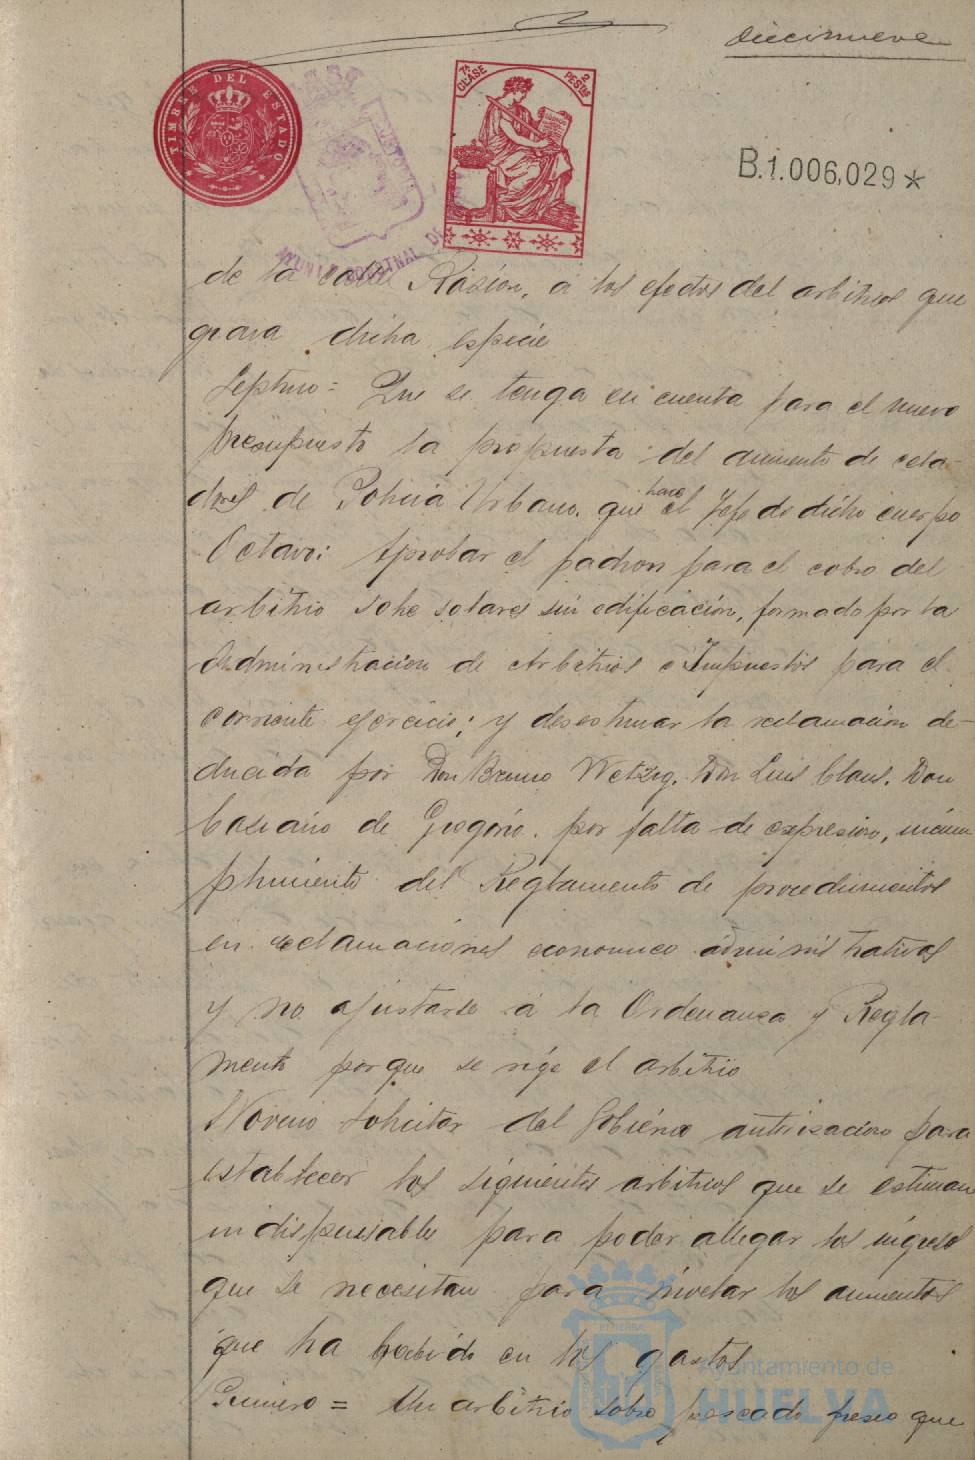 diecinueve
TIMBRE DEL ESTADO
7ª CLASE 2 PESTAS
B.1.006,029*
de la calle Rascón, á los efectos del arbitrios que
grava dicha especie
Septimo = Que se tenga en cuenta para el nuevo
presupuesto la propuesta del aumento de cela-
dores de Policia Urbana. que hace el Jefe de dicho cuerpo
Octavo: Aprobar el padron para el cobro del
arbitrio sobre solares sin edificación, formado por la
Administracion de Arbitrios e Impuestos para el
corriente ejercicio; y desestimar la reclamacion de-
ducida por Don Bruno Wetzig. Don Luis Claus. Don
Casiano de Gregorio. por falta de expresion, incum
plimiento del Reglamento de procedimientos
en reclamaciones economico administrativas
y no ajustarse á la Ordenanza y Regla-
mento porque se rige el arbitrio
Noveno Solicitar del Gobierno autorizacion para
establecer los siguientes arbitrios que se estiman
indispensables para poder allegar los ingresos
que se necesitan para nivelar los aumentos
que ha habido en los gastos
Primero = Un arbitrio sobre pescado fresco que
Ayuntamiento de
HUELVA